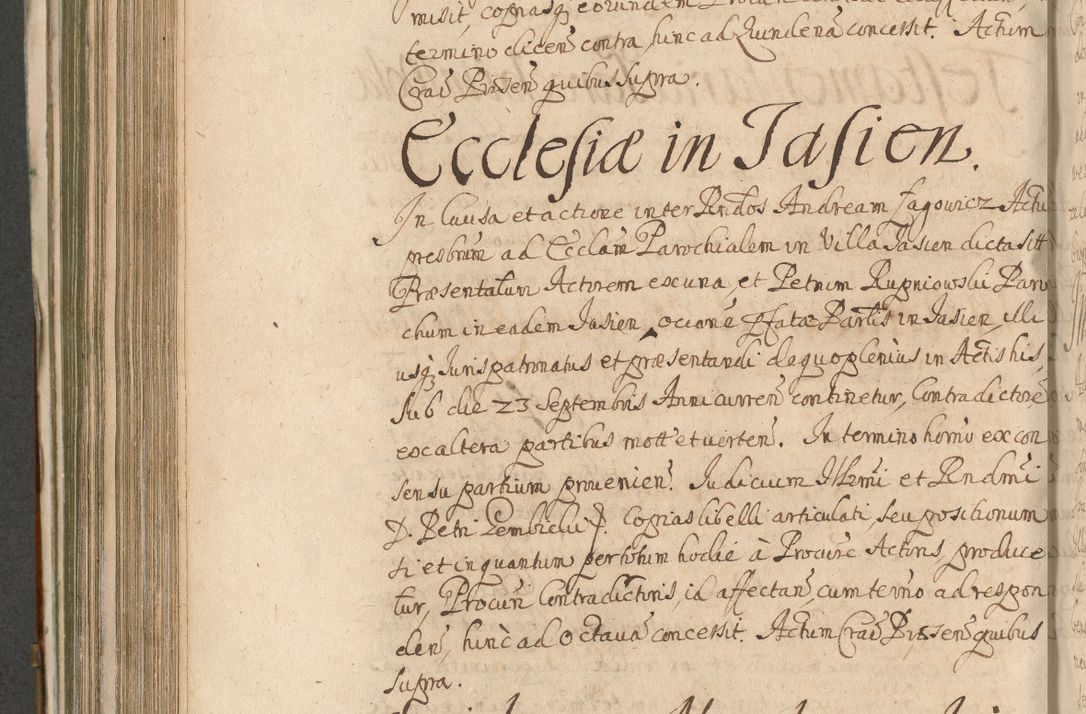 misit, copiasq eorundem
termino dicen contra hinc ad Quindena concessit. Actum
Crac Pnsen quibus supra.
Ecclesiæ in Jasien.
In Causa et actione inter Rndos Andream Jagowicz Actu
presbrum ad Ecclam Parochialem in Villa Jasien dicta sitt
Præsentatum Actorem ex una, et Petrum Rupniowski Paro
chum in eadem Jasien, ocione Pfatæ Partis in Jasien, illi
usq Jurispatronatus et præsentandi de quo plenius in Actis his,
sub die 23 Septembris Anni curren continetur, Contradictore
ex altera partibus mott et verten. In termino horno ex con
sensu partium provenien. Judicium Illrmi et Rndmi
D. Petri Gembicki P. Copias libelli articulati, seu positionum
si et in quantum per totum hodie à Procure Actoris, produce
tur, Procuri Contradictoris, id affectan, cum termo ad respon
den, hinc ad Octava concessit. Actum Crac Pnsen quibus
supra.